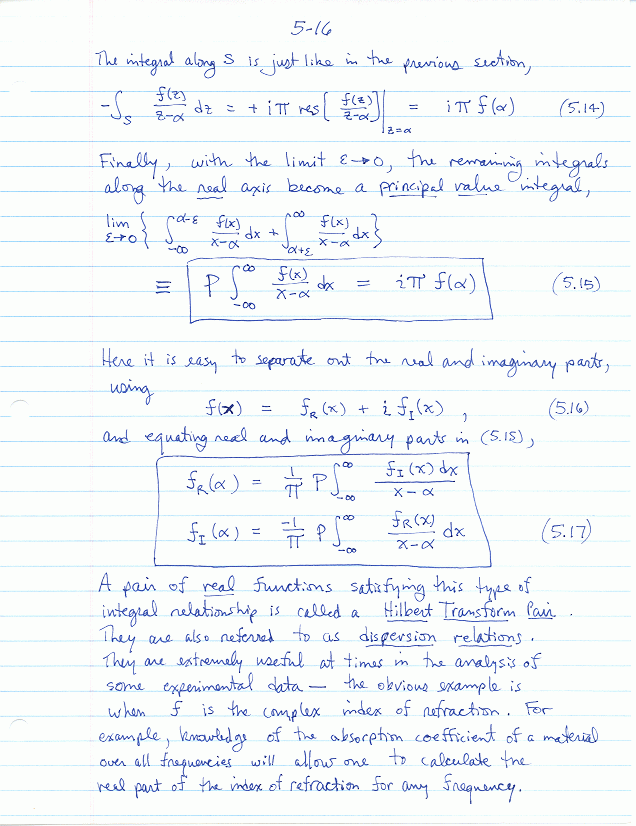 5-16
The integral along S is just like in the previous section,
-∫_S f(z)/(z-α) dz = + iπ res[ f(z)/(z-α) ]|_{z=α} = iπ f(α) (5.14)
Finally, with the limit ε→0, the remaining integrals
along the real axis become a principal value integral,
lim_{ε→0} { ∫_{-∞}^{α-ε} f(x)/(x-α) dx + ∫_{α+ε}^{∞} f(x)/(x-α) dx }
≡ P ∫_{-∞}^{∞} f(x)/(x-α) dx = iπ f(α) (5.15)
Here it is easy to separate out the real and imaginary parts,
using
f(x) = f_R(x) + i f_I(x) , (5.16)
and equating real and imaginary parts in (5.15),
f_R(α) = 1/π P ∫_{-∞}^{∞} f_I(x) dx/(x-α)
f_I(α) = -1/π P ∫_{-∞}^{∞} f_R(x)/(x-α) dx (5.17)
A pair of real functions satisfying this type of
integral relationship is called a Hilbert Transform Pair.
They are also referred to as dispersion relations.
They are extremely useful at times in the analysis of
some experimental data — the obvious example is
when f is the complex index of refraction. For
example, knowledge of the absorption coefficient of a material
over all frequencies will allow one to calculate the
real part of the index of refraction for any frequency.